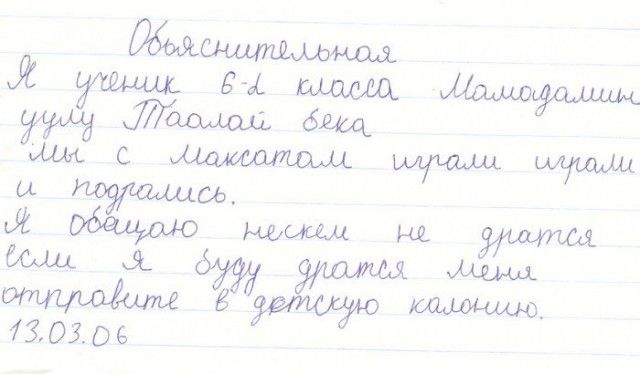 Обьяснительная
Я ученик 6-д класса Мамадамин
уулу Таалай бека
мы с Максатам играли играли
и подрались.
Я обещаю нескем не дратся
если я буду дратся меня
отпправите в детскую калонию.
13.03.06